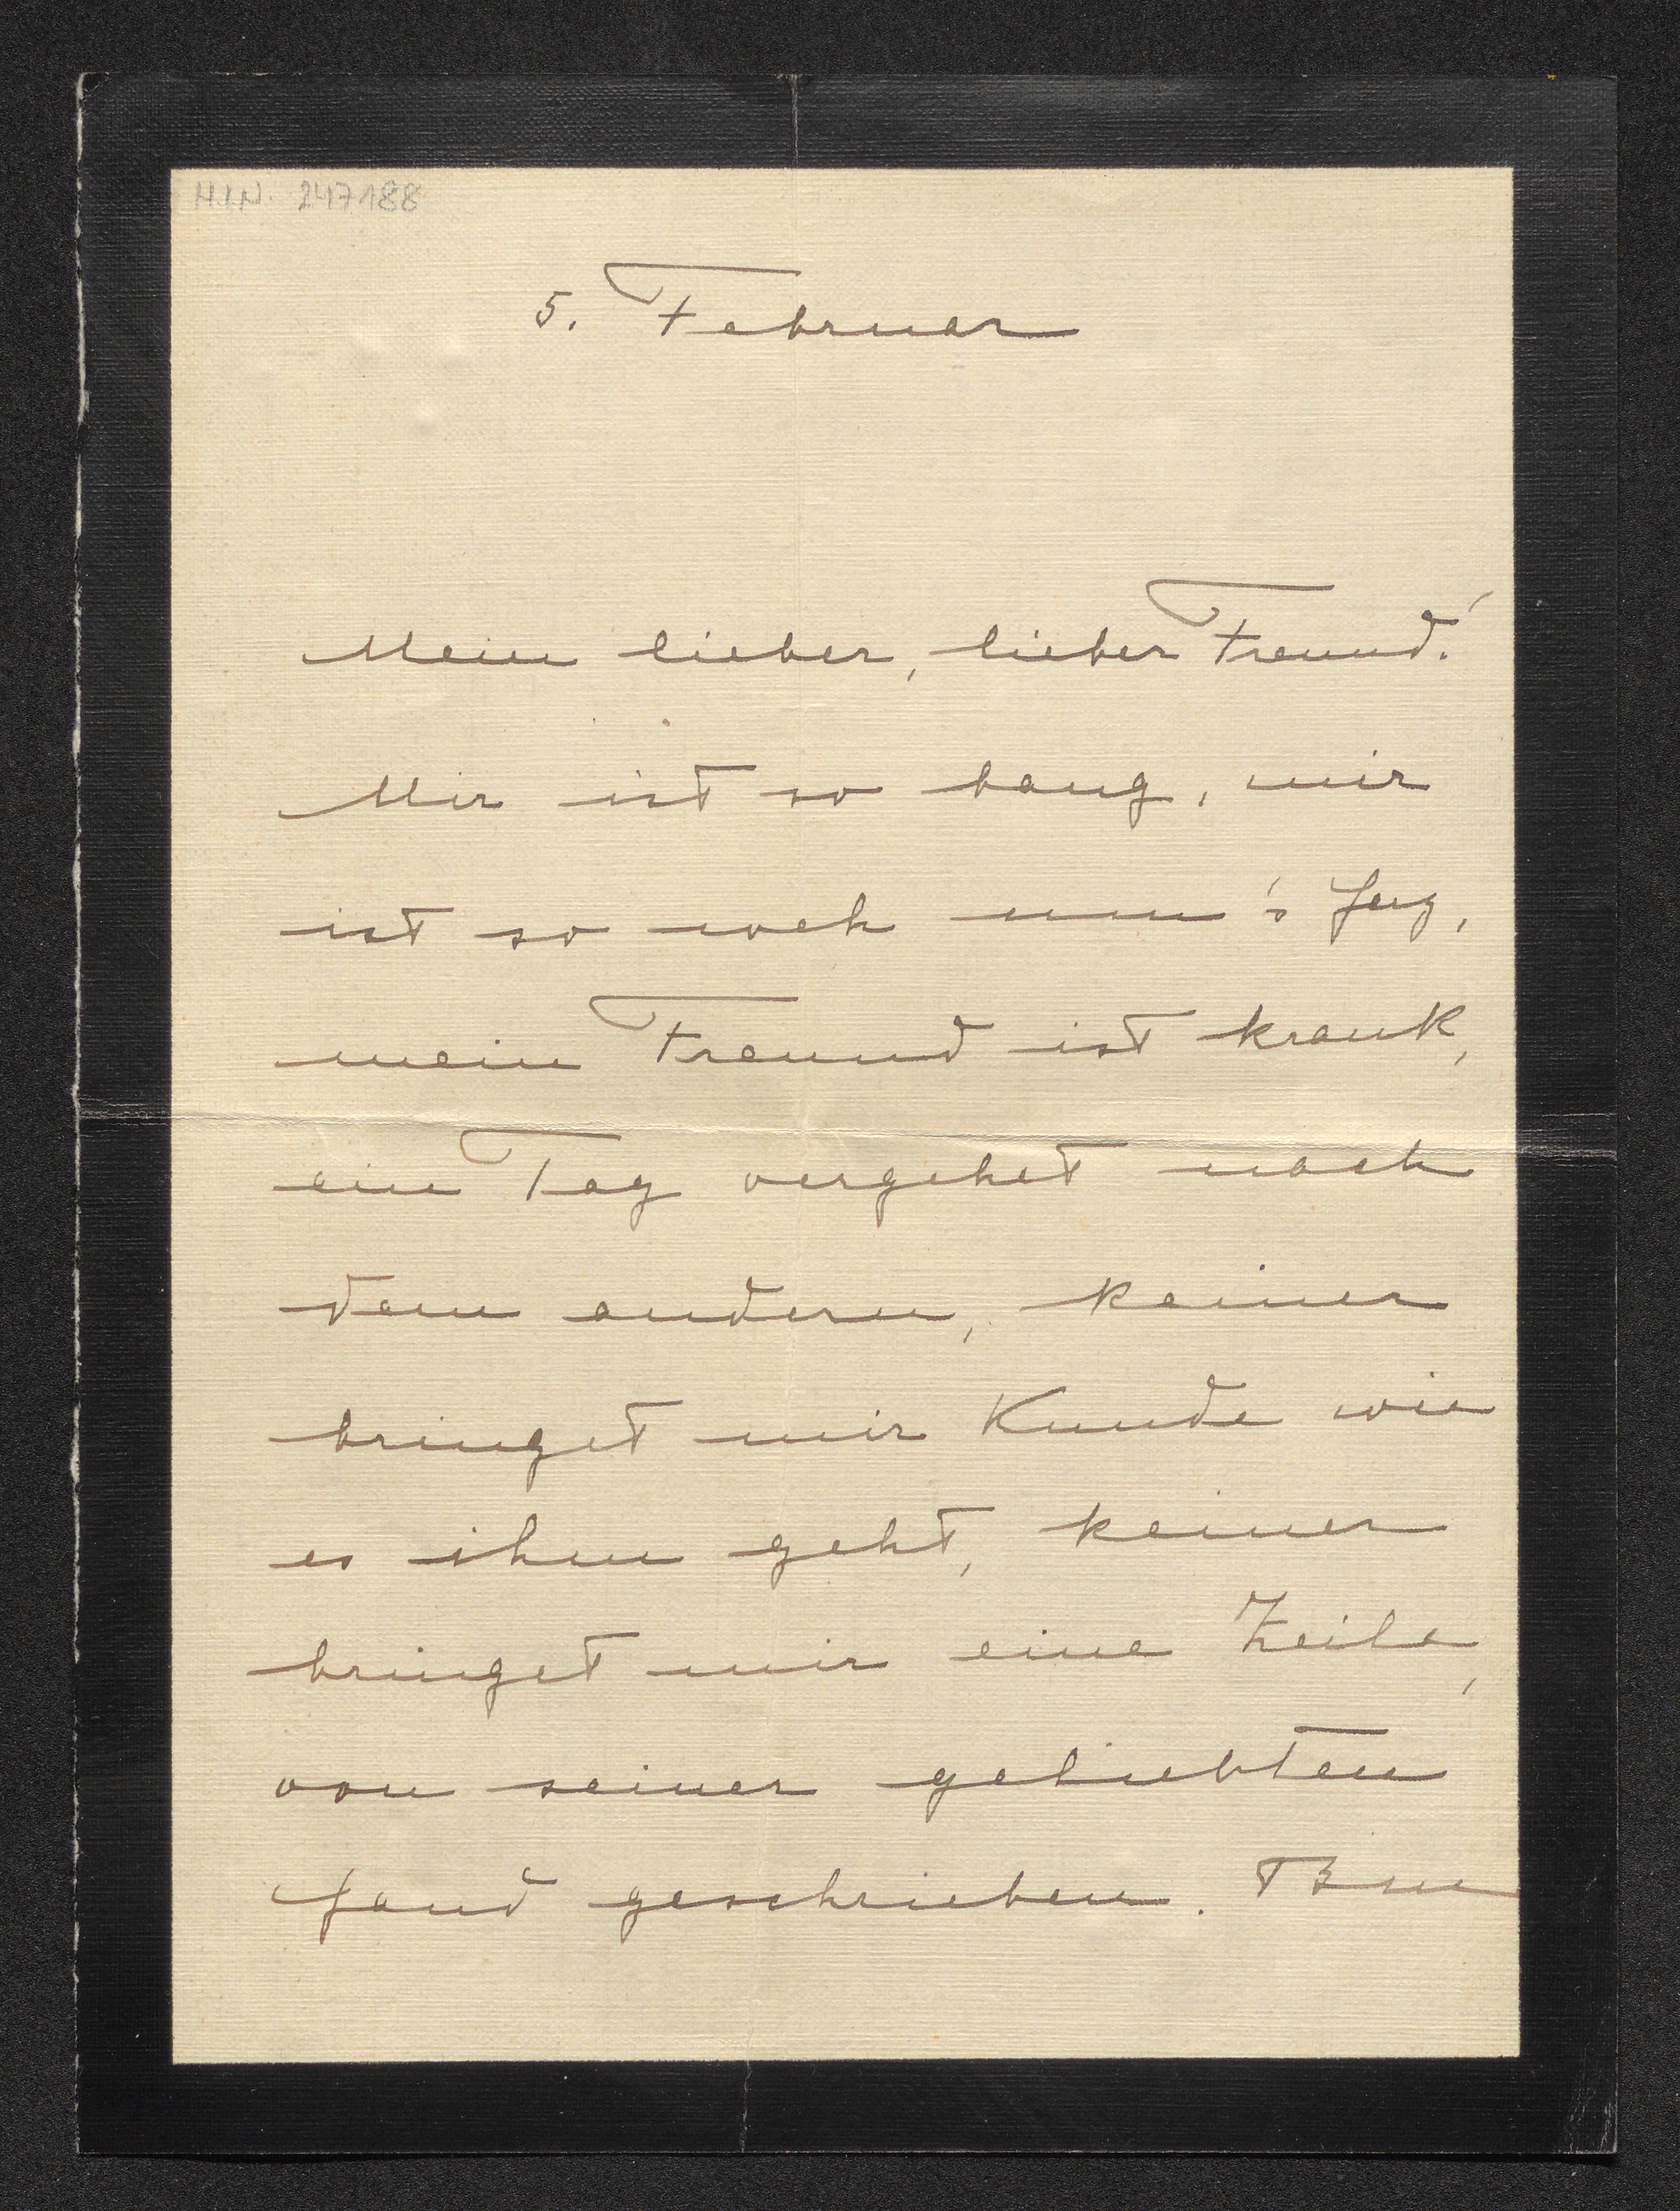 H.I.N. 247188
5. Februar
Mein lieber, lieber Freund!
Mir ist so bang, mir
ist so weh um's Herz,
mein Freund ist krank,
ein Tag vergehet nach
dem andern, keiner
bringet mir Kunde wie
es ihm geht, keiner
bringet mir eine Zeile,
von seiner geliebten
Hand geschrieben.